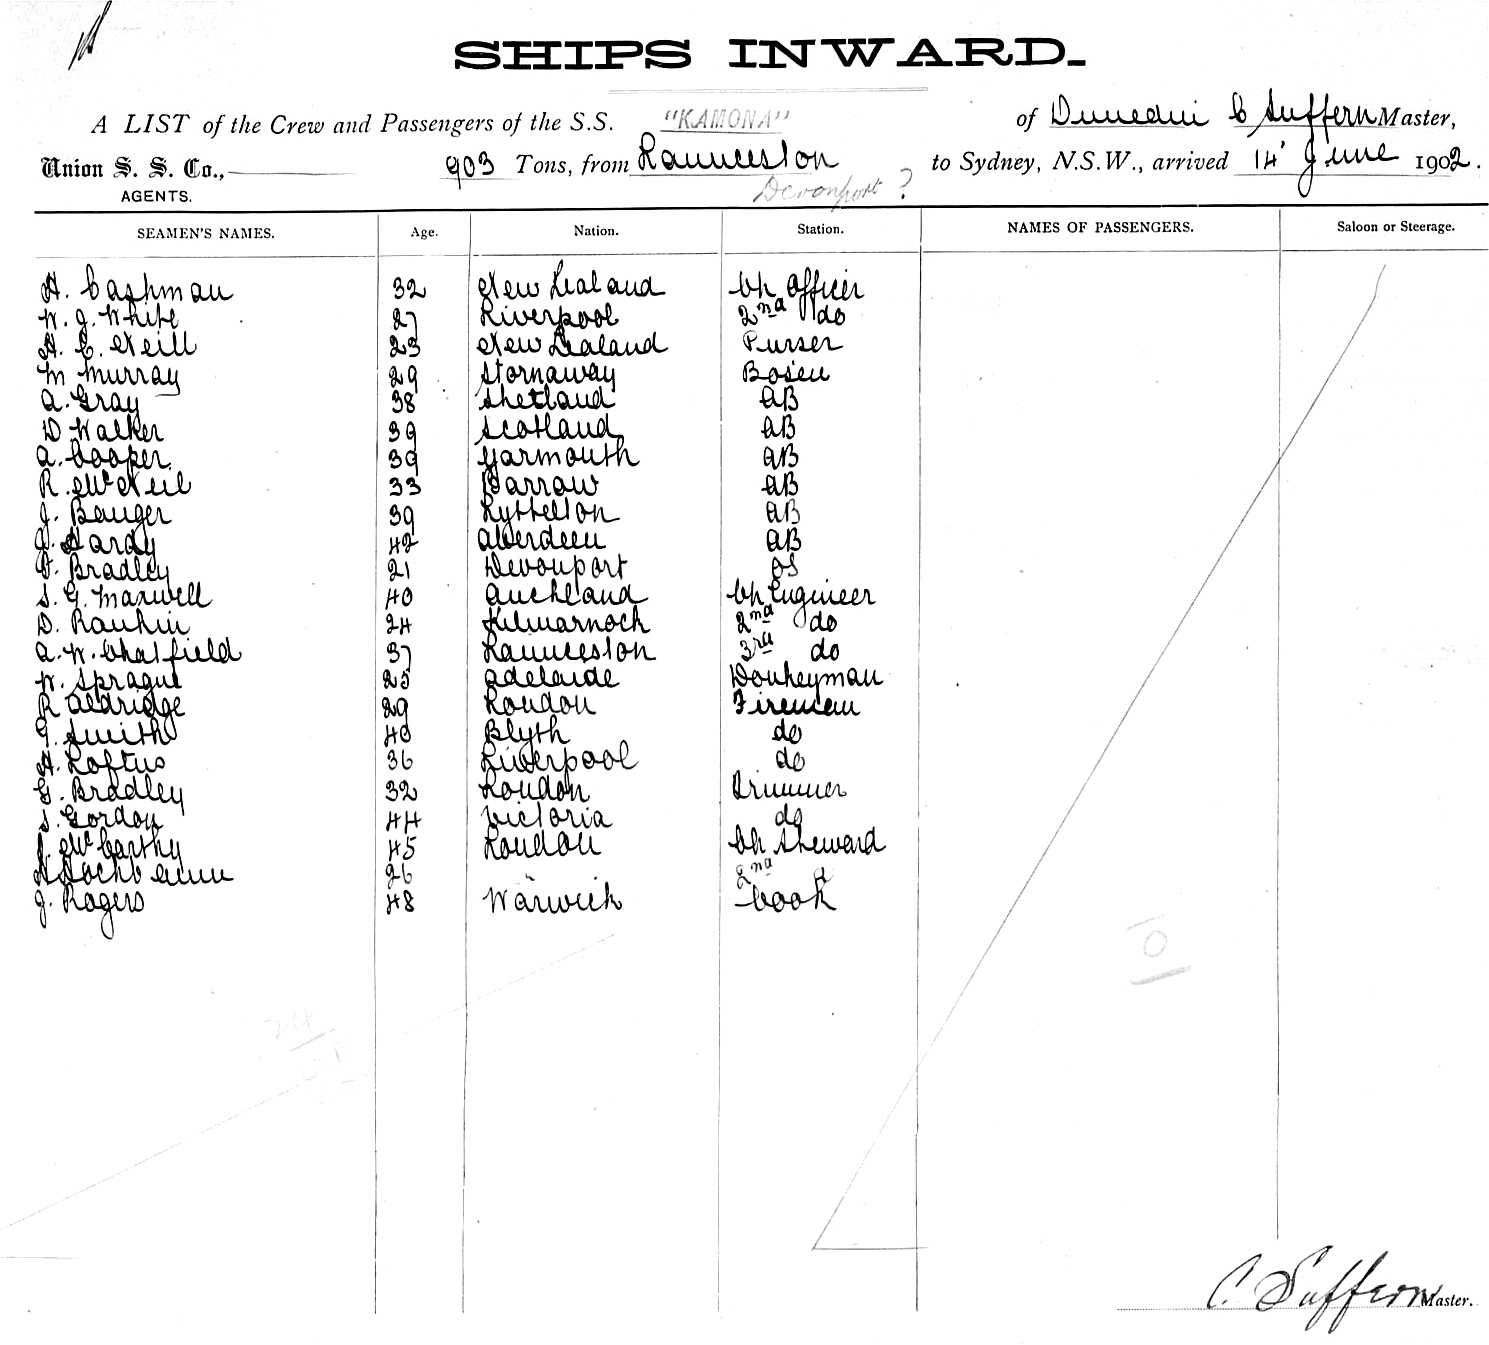 SHIPS INWARD.
A LIST of the Crew and Passengers of the S.S. "KAMONA" of Dunedin C Suffern Master,
Union S. S. Co., 903 Tons, from Launceston to Sydney, N.S.W., arrived 14' June 1902.
AGENTS. Devonport ?
SEAMEN'S NAMES. Age. Nation. Station. NAMES OF PASSENGERS. Saloon or Steerage.
H. Cashman 32 New Zealand Ch Officer
W. J. White 27 Liverpool 2nd do
H. C. Neill 23 New Zealand Purser
M Murray 29 Stornaway Bosen
A. Gray 38 Shetland AB
D Walker 39 Scotland AB
A. Cooper 39 Yarmouth AB
R. McNeil 33 Barrow AB
J. Bauger 39 Lyttelton AB
Hardy 42 Aberdeen AB
Bradley 21 Devonport OS
S. G. Maxwell 40 Auckland Ch Engineer
D. Rankin 24 Kilmarnock 2nd do
A. W. Chatfield 37 Launceston 3rd do
W. Sprague 25 Adelaide Donkeyman
R Aldridge 29 London Fireman
G. Smith 40 Blyth do
H. Loftus 36 Liverpool do
G. Bradley 32 London Trimmer
S. Gordon 44 Victoria do
McCarthy 45 London Ch Steward
26 2nd
J. Rogers 48 Warwick Cook
0
C. Suffern Master.